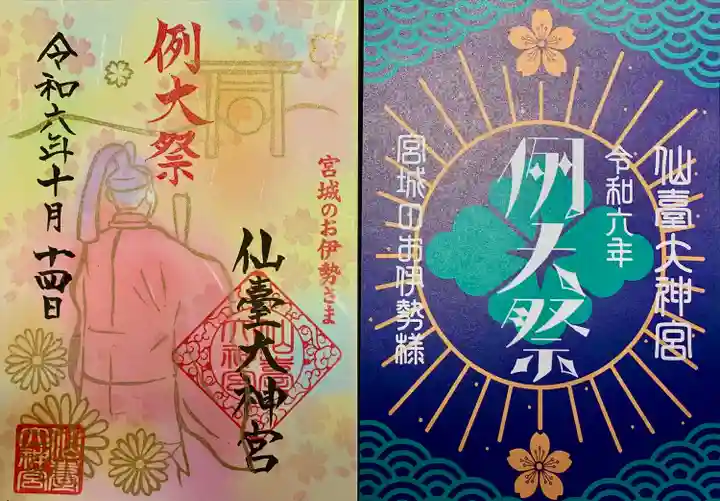 例大祭
宮城のお伊勢さま
仙臺大神宮
令和六年十月十四日
仙臺
大神宮
仙臺
大神宮
仙臺大神宮
令和六年
例大祭
宮城のお伊勢様